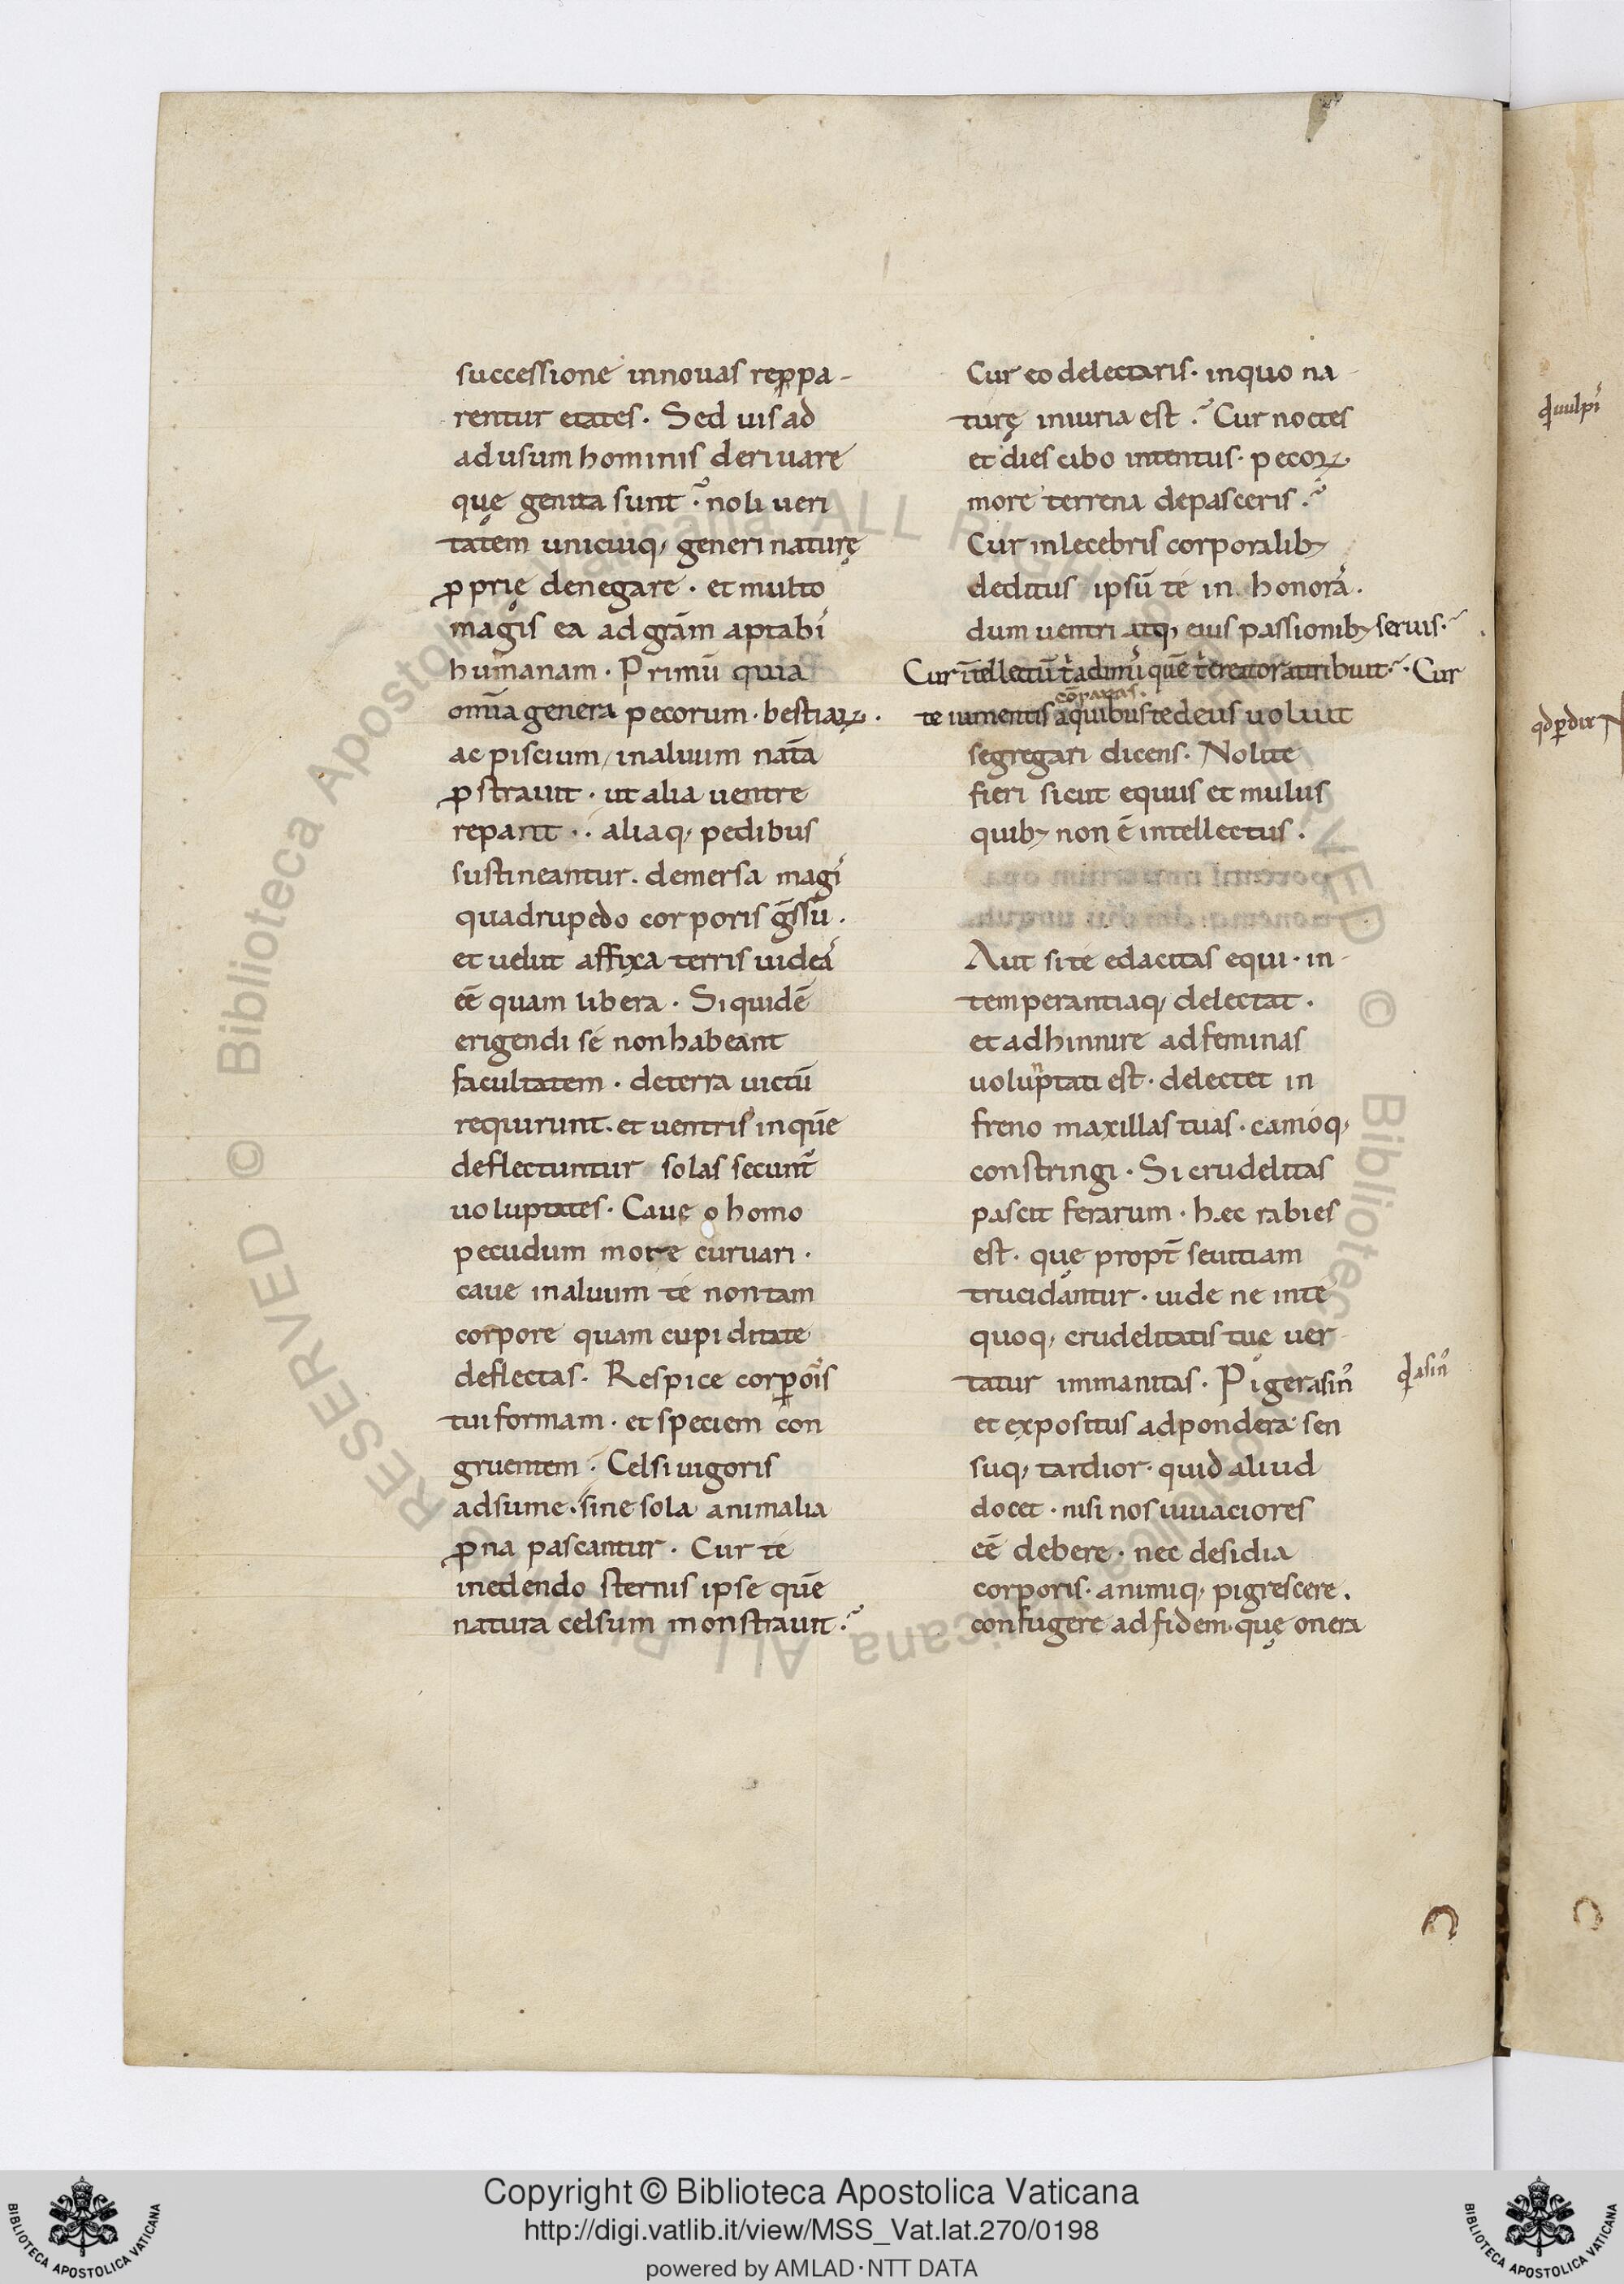 successione innouas reppa-
rentur etates. Sed uis ad
ad usum hominis deriuare
quę genita sunt? noli ueri
tatem unicuiq; generi naturę
ꝓprię denegare. et multo
magis ea ad grām aptabı͛
humanam. Primū quia
omīa genera pecorum. bestiaꝝ.
ac piscium, in aluum natā
ꝓstrauit. ut alia uentre
repant. aliaq; pedibus
sustineantur. demersa magı͛
quadrupedo corporis gressū.
et uelut affixa terris uideā
eē quam libera. Siquidē
erigendi se non habeant
facultatem. de terra uictū
requirunt. et uentris in quē
deflectuntur solas secunt̄
uoluptates. Caue o homo
pecudum more curuari.
caue in aluum te non tam
corpore quam cupiditate
deflectas. Respice corporis
tui formam. et speciem con
gruentem. Celsi uigoris
adsume. sine sola animalia
ꝓna pascantur. Cur te
in edendo sternis ipse quē
natura celsum monstrauit?
Cur eo delectaris. in quo na-
turę iniuria est? Cur noctes
et dies cibo intentus. pecoꝝ
more terrena depasceris?
Cur inlecebris corporalibꝫ
deditus ipsū te in honorā.
dum uentri atq; eius passionibꝫ seruis?
Cur ītellectū t̄ adimı͛ quē t̄ creator attribuit? Cur
cōparas.
te iumentis a quibus te deus uoluit
segregari dicens. Nolite
fieri sicut equus et mulus
quibꝫ non ē intellectus.
Aut si te edacitas equi. in-
temperantiaq; delectat.
et adhinnire ad feminas
uoluptati est. delectet in
freno maxillas tuas. camoq;
constringi. Si crudelitas
pascit ferarum. hec rabies
est. quę propt̄ seuitiam
trucidantur. uide ne in te
quoq; crudelitatis tuę uer-
tatur immanitas. Piger asin᷒
et expositus ad pondera sen
suq; tardior. quid aliud
docet. nisi nos uiuaciores
eē debere. nec desidia
corporis. animiq; pigrescere.
confugere ad fidem. quę onera
ꝗ asin᷒
ꝗ uulpı͛
Copyright © Biblioteca Apostolica Vaticana
http://digi.vatlib.it/view/MSS_Vat.lat.270/0198
powered by AMLAD·NTT DATA
BIBLIOTECA APOSTOLICA VATICANA
BIBLIOTECA APOSTOLICA VATICANA